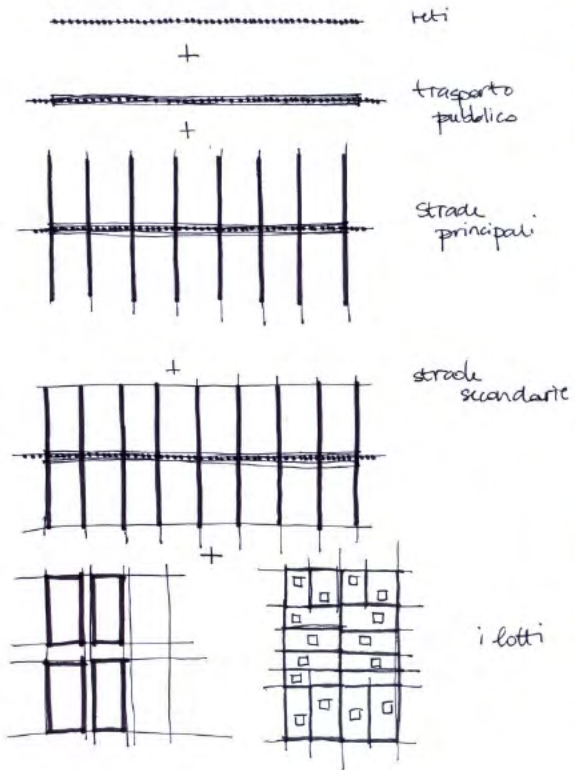 reti
+
trasporto
pubblico
+
strade
principali
+
strade
secondarie
+
i lotti